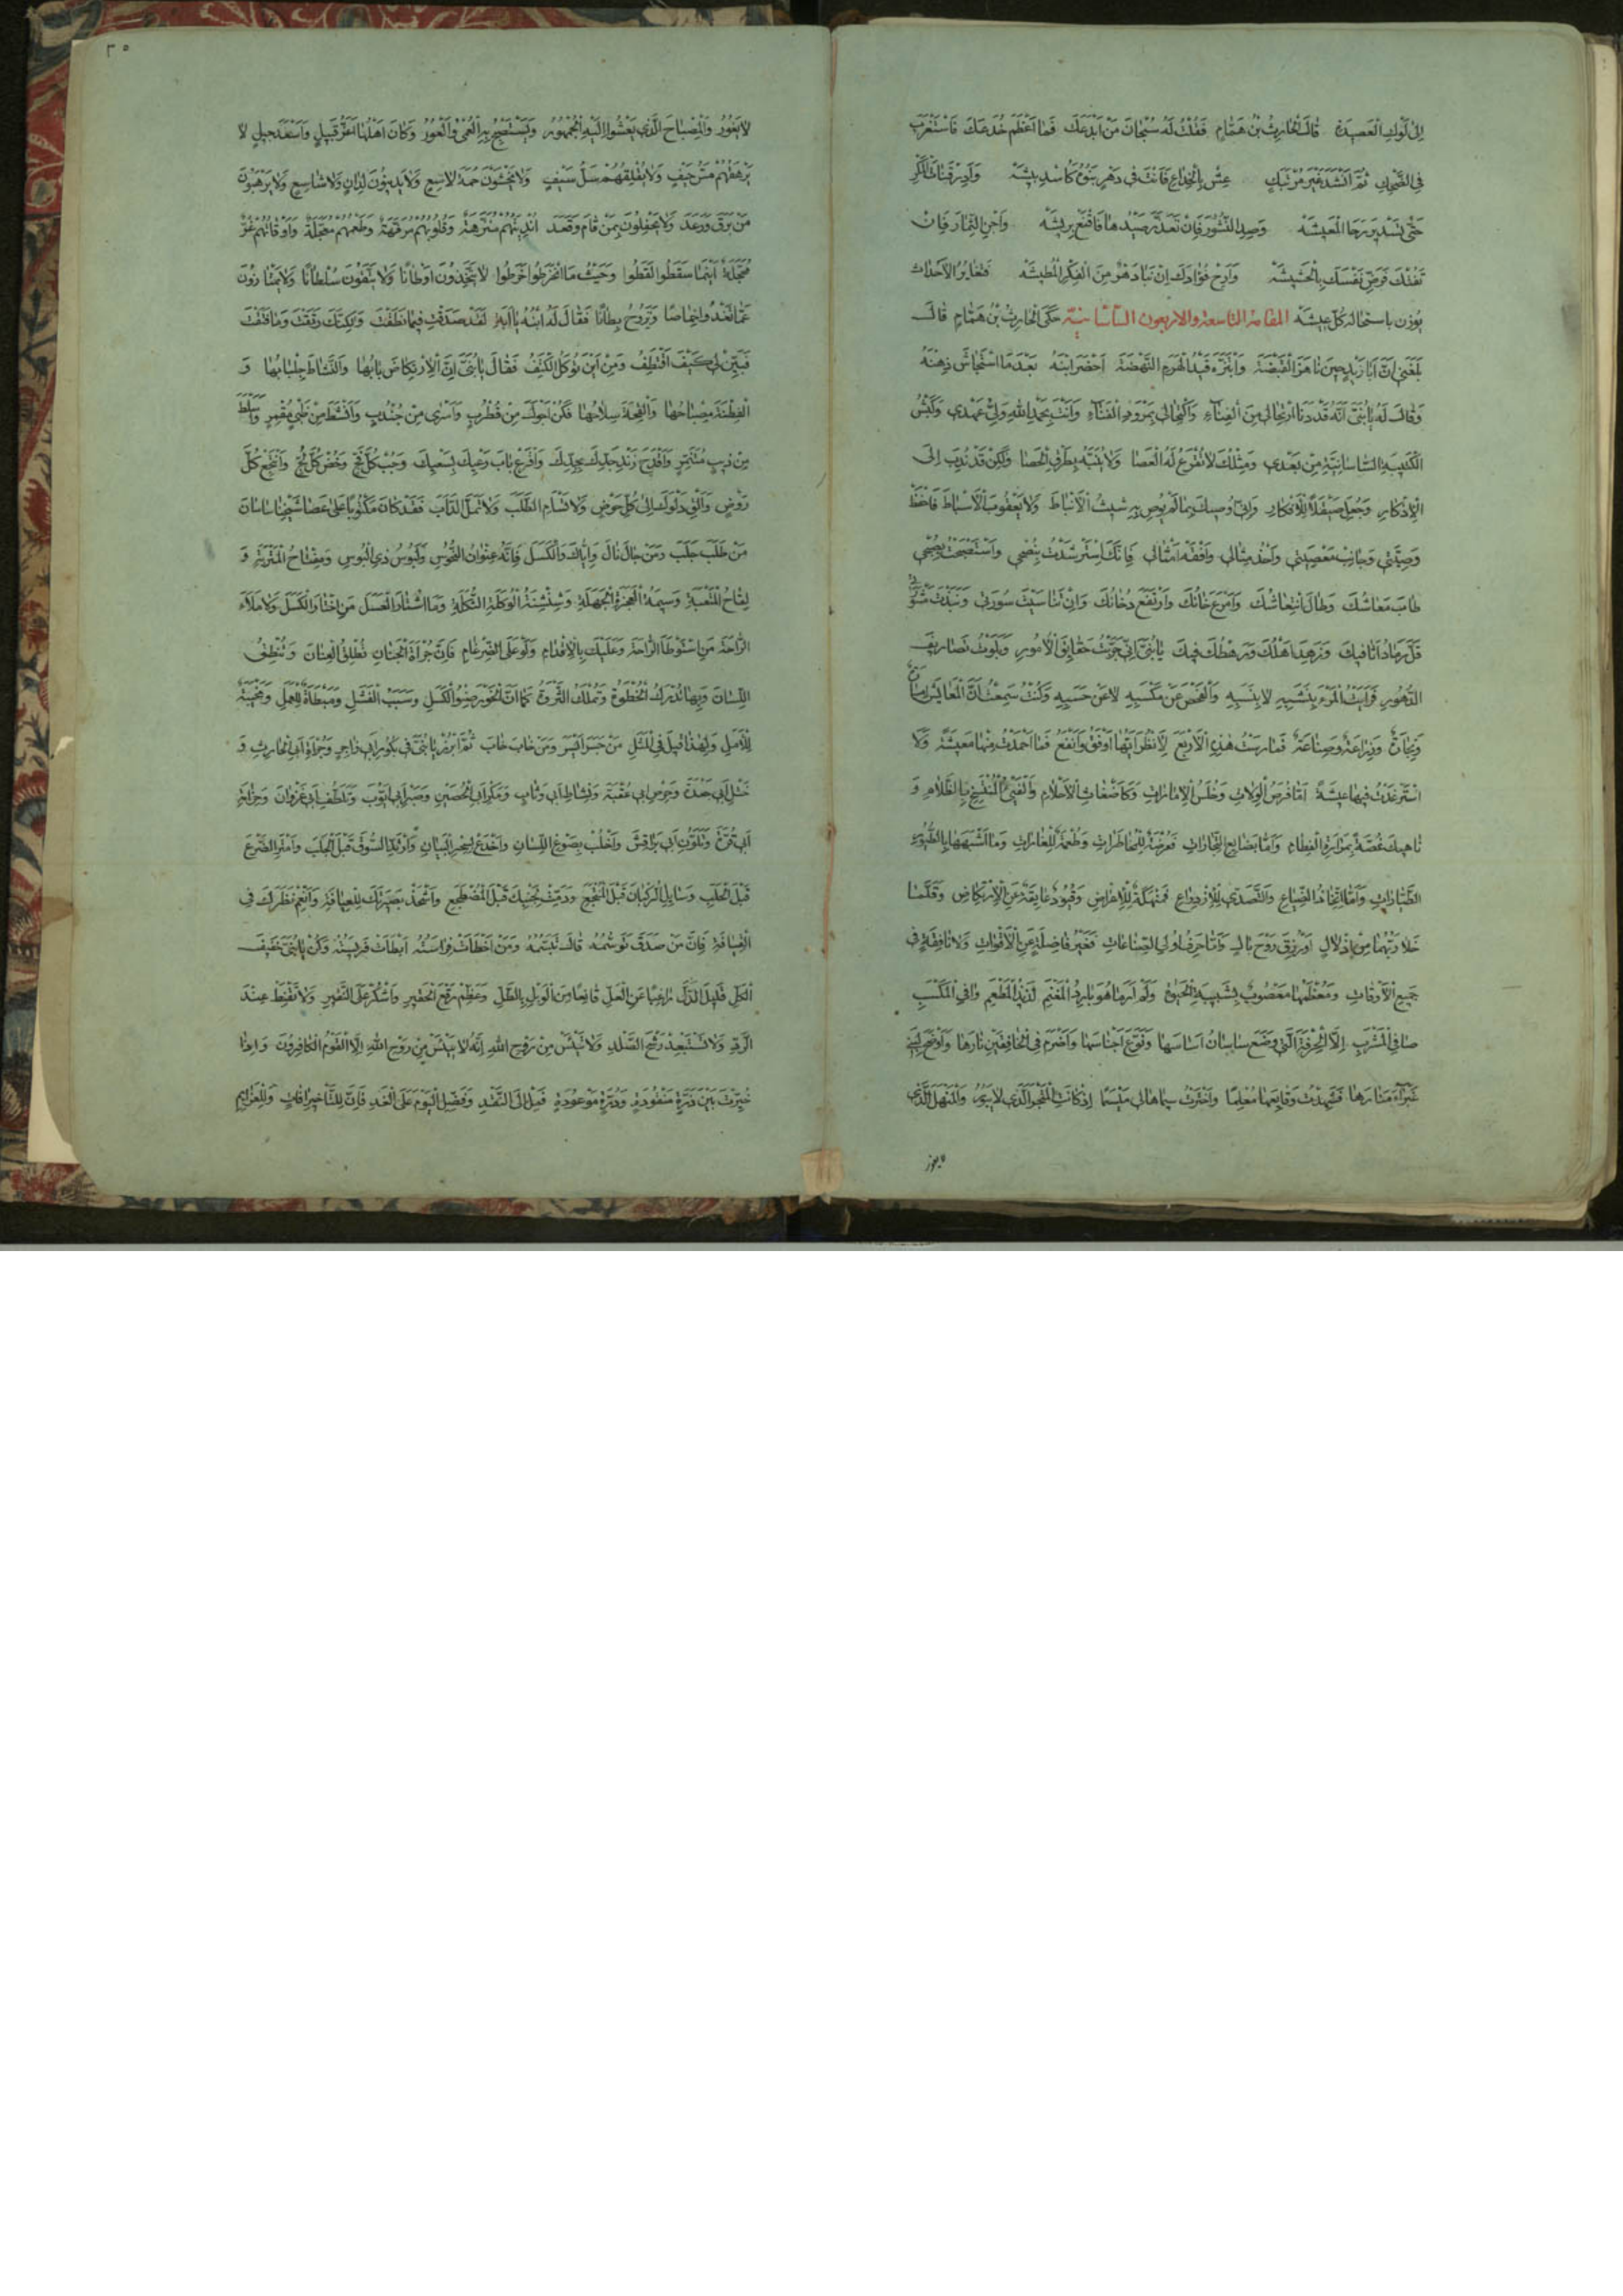 إلى لوك العصيدة قال الحارث بن همام فقلت له سبحان من أبدعك فما أعظم خدعك فاستغرب
في الضحك ثم أنشد غير مرتبك عش بالخداع فأنت في دهر بنوه كأسد بيشه وأدر قناة المكر
حتى تستدير رحا المعيشه وصد النسور فإن تعذر صيدها فاقنع بريشه واجن الثمار فإن
تفتك فرض نفسك بالحشيشه وأرح فؤادك إن نبا دهر من الفكر المطيشه فتغاير الأحداث
يؤذن باستحالة كل عيشه المقامة التاسعة والاربعون الساسانية حكى الحارث بن همام قال
بلغني أن أبا زيد حين ناهز القبضة وابتزه قيد الهرم النهضة أحضر ابنه بعدما استجاش ذهنه
وقال له يا بني أنه قد دنا ارتحالي من الفناء واكتحالي بمرود الفناء وأنت بحمد الله ولي عهدي وكبش
الكتيبة الساسانية من بعدي ومثلك لا تقرع له العصا ولا ينبه بطرق الحصا ولكن قد ندب إلى
الإذكار وجعل صيقلا للأفكار وإني أوصيك بما لم يوص به شيث الأنباط ولا يعقوب الأسباط فاحفظ
وصيتي وجانب معصيتي واحذ مثالي وافقه أمثالي فإنك إن استرشدت بنصحي واستصبحت بصبحي
طاب معاشك وطال انتعاشك وأمرع خانك وارتفع دخانك وإن تناسيت سورتي ونبذت مشورتي
قل رماد أثافيك وزهد أهلك ورهطك فيك يا بني إني جربت حقايق الأمور وبلوت تصاريف
الدهور فرأيت المرء بنشبه لا بنسبه والفحص عن مكسبه لا عن حسبه وكنت سمعت أن المعايش امارة
وتجارة وزراعة وصناعة فمارست هذه الأربع لأنظر أيها أوفق وأنفع فما أحمدت منها معيشة ولا
استرغدت فيها عيشة أما فرص الولايات وخلس الإمارات فكأضغاث الأحلام والفيء المنتسخ بالظلام و
ناهيك غصة بمرارة الفطام وأما بضايع التجارات فعرضة للمخاطرات وطعمة للغارات وما أشبهها بالطيور
الطيارات وأما اتخاذ الضياع والتصدي للازدراع فمنهكة للأعراض وقيود عايقة عن الارتكاض وقلما
خلا ربهما من إذلال أو رزق روح بال وأما حرف أولي الصناعات فغير فاضلة عن الأقوات ولا نافقة في
جميع الأوقات ومعظمها معصوب بشبيبة الحيوة ولم أر ما هو بارد المغنم لذيذ المطعم وافي المكسب
صافي المشرب إلا الحرفة التي وضع ساسان أساسها ونوع أجناسها وأضرم في الخافقين نارها وأوضح لبني
غبراء منارها فشهدت وقايعها معلما واخترت سيماها لي ميسما إذ كانت المتجر الذي لا يبور والمنهل الذي
لا يغور
٣٥
لا يغور والمصباح الذي يعشو إليه الجمهور ويستصبح به العمي والعور وكان أهلها أعز قبيل وأسعد جيل لا
يرهقهم مس حيف ولا يقلقهم سل سيف ولا يخشون حمة لاسع ولا يدينون لدان ولا شاسع ولا يرهبون
من برق ورعد ولا يحفلون بمن قام وقعد أنديتهم منزهة وقلوبهم مرفهة وطعمهم معجلة وأوقاتهم غر
محجلة أينما سقطوا لقطوا وحيث ما انخرطوا خرطوا لا يتخذون أوطانا ولا يتقون سلطانا ولا يمتازون
عما تغدو خماصا وتروح بطانا فقال له ابنه يا أبة لقد صدقت فيما نطقت ولكنك رتقت وما فتقت
فبين لي كيف أقتطف ومن أين تؤكل الكتف فقال يا بني إن الارتكاض بابها والنشاط جلبابها و
الفطنة مصباحها والقحة سلاحها فكن أجول من قطرب وأسرى من جندب وأنشط من ظبي مقمر وأسلط
من ذيب متنمر واقدح زند جدك بجدك واقرع باب رعيك بسعيك وجب كل فج وخض كل لج وانتجع كل
روض وألق دلوك إلى كل حوض ولا تسأم الطلب ولا تمل الدأب فقد كان مكتوبا على عصا شيخنا ساسان
من طلب جلب ومن جال نال وإياك والكسل فإنه عنوان النحوس ولبوس ذي البوس ومفتاح المتربة و
لقاح المتعبة وسيمة العجزة الجهلة وشنشنة الوكلة التكلة وما اشتار العسل من اختار الكسل ولا ملأ
الراحة من استوطأ الراحة وعليك بالإقدام ولو على الضرغام فإن جرأة الجنان تطلق العنان وتنطق
اللسان وبها تدرك الحظوة وتملك الثروة كما أن الخور صنو الكسل وسبب الفشل ومبطأة للعمل ومخيبة
للأمل ولهذا قيل في المثل من جسر أيسر ومن هاب خاب ثم ابرز يا بني في بكور أبي زاجر وجرأة أبي الحارث و
ختل أبي جعدة وحرص أبي عقبة ونشاط أبي وثاب ومكر أبي الحصين وصبر أبي أيوب وتلطف أبي غزوان وحزامة
أبي قرة وتلون أبي براقش واخلب بصوغ اللسان واخدع بسحر البيان وارتد السوق قبل الجلب وامتر الضرع
قبل الحلب وسايل الركبان قبل المنتجع ودمث لجنبك قبل المضطجع واشحذ بصيرتك للعيافة وأنعم نظرك في
القيافة فإن من صدق توسمه طال تبسمه ومن أخطأت فراسته أبطأت فريسته وكن يا بني خفيف
الكل قليل الدل راغبا عن العل قانعا من الوبل بالطل وعظم وقع الحقير واشكر على النقير ولا تقنط عند
الرد ولا تستبعد رشح الصلد ولا تيئس من روح الله إنه لا ييئس من روح الله إلا القوم الكافرون وإذا
خيرت بين ذرة منقودة ودرة موعودة فمل إلى النقد وفضل اليوم على الغد فإن للتأخير آفات وللعزايم